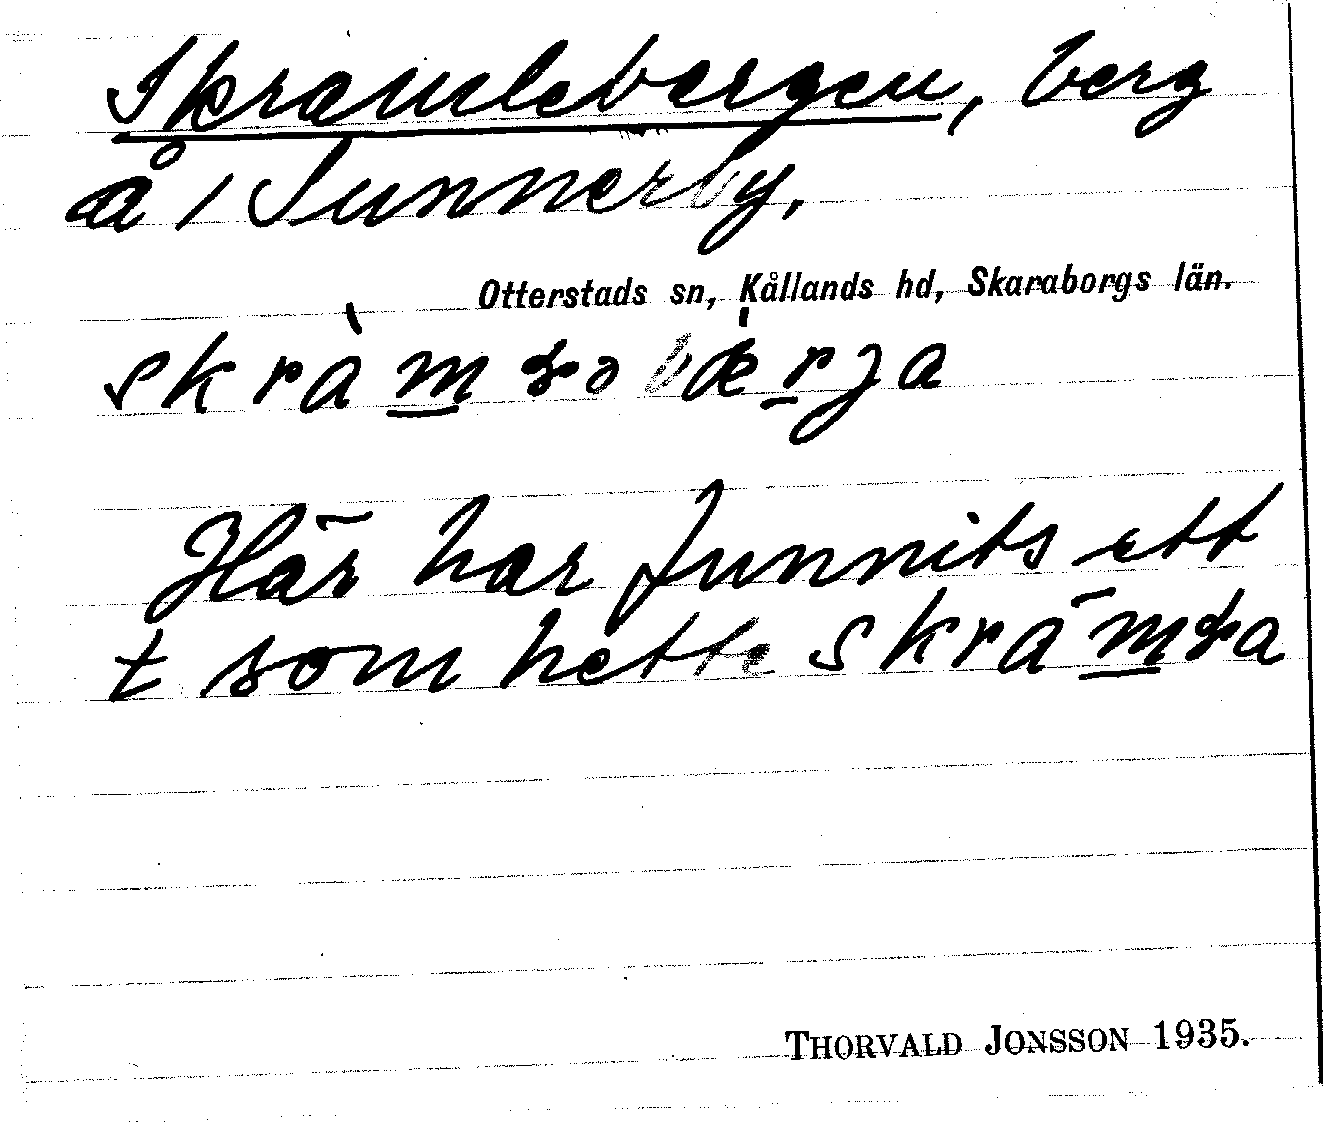 Skramlebergen, berg
å / Sunnerby,
Otterstads sn, Kållands hd, Skaraborgs län.
Här har funnits ett
t som hette
THORVALD JONSSON 1935.